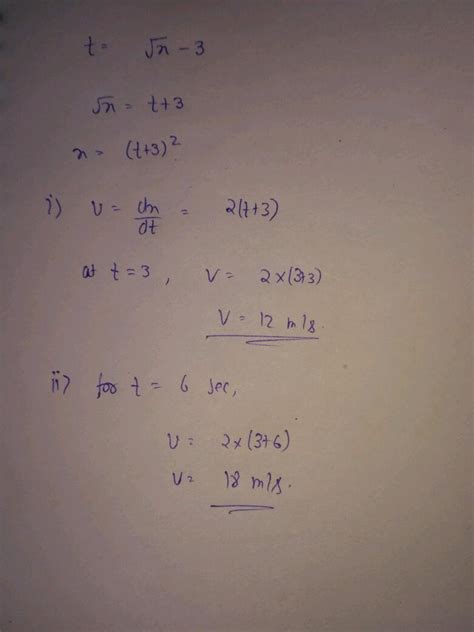 t = √x - 3
√x = t+3
x = (t+3)²
i) v = dx/dt = 2(t+3)
at t = 3, v = 2×(3+3)
v = 12 m/s.
ii) for t = 6 sec,
v = 2×(3+6)
v = 18 m/s.